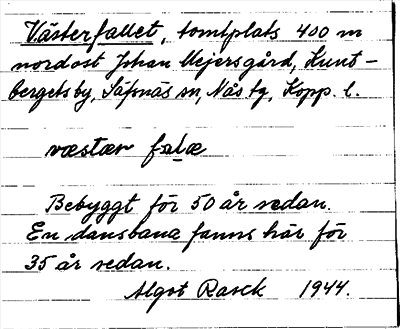 Västerfallet, tomtplats 400 m
nordost Johan Mejersgård, Kunt-
bergets by, Säfsnäs sn, Nås tg, Kopp. l.
væstær falæ
Bebyggt för 50 år sedan.
En dansbana fanns här för
35 år sedan.
Algot Rasck 1944.